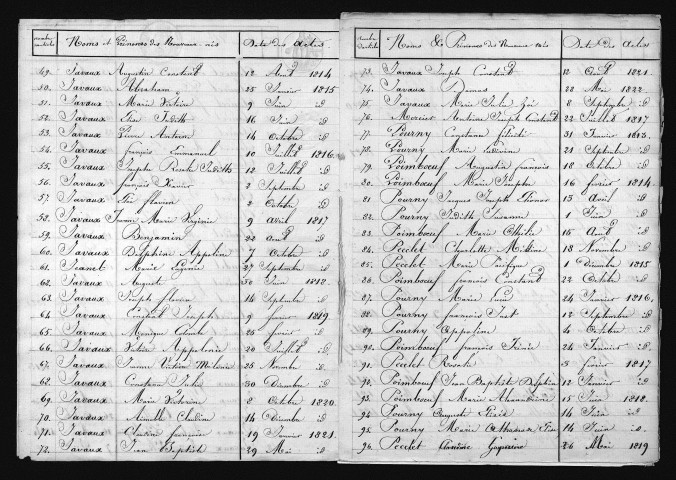 Noms et Prénoms des Nouveaux nés Date des Actes
49. Javaux Augustin Constant 12 Août 1814
50. Javaux Abraham 25 Janvier 1815
51. Javaux Marie Victoire 9 Juin id
52. Javaux Judith 16 Juin id
53. Javaux Pierre Antoine 14 Octobre id
54. Javaux françois Emmanuel 10 Juillet 1816
55. Javaux Josephe Rosalie Judith 12 Juillet id
56. Javaux françois Xavier 2 Septembre id
57. Javaux flavien 2 Octobre id
58. Javaux Jeanne Marie Virginie 9 Avril 1817
59. Javaux Benjamin 22 Août id
60. Javaux Delphine Appoline 7 Octobre id
61. Jeanet Marie Eugénie 27 Septembre id
62. Javaux Auguste 30 Juin 1818
63. Javaux Joseph flavien 14 Septembre id
64. Javaux Joseph 9 février 1819
65. Javaux Monique 25 février id
66. Javaux Victoire Appolonie 20 Juillet id
67. Javaux Jeanne Victoire Mélanie 25 Novembre id
68. Javaux Constance Julie 30 Décembre id
69. Javaux Marie Victorine 8 Octobre 1820
70. Javaux Aimable Claudine 14 Décembre id
71. Javaux Claudine françoise 19 Janvier 1821
72. Javaux Jean Baptiste 29 Mai id
Noms & Prénoms des Nouveaux nés Date des Actes
73. Javaux Joseph Constant 12 Août 1821
74. Javaux Dumas 22 Mai 1822
75. Javaux Marie Julie Zoé 8 Septembre id
76. Mercier Antoine Joseph Constant 22 Juillet 1817
77. Pourny Cyprienne félicité 31 Janvier 1813
78. Pourny Marie 21 Septembre id
79. Poimbœuf Augustin françois 18 Octobre id
80. Poimbœuf Marie Josephe 16 février 1814
81. Pourny Jacques Joseph 13 Août id
82. Pourny Judith Suzanne 1 Juin id
83. Poimbœuf Marie 15 Août id
84. Pecclet Charlotte 18 Novembre id
85. Pecclet Marie Pacifique 1 Décembre 1815
86. Poimbœuf françois Constant 22 Octobre id
87. Pourny Marie 24 Janvier 1816
88. Pourny françois Just 12 Septembre id
89. Pourny Appoline 4 Octobre id
90. Poimbœuf françois 24 Janvier id
91. Pecclet Rosalie 3 février 1817
92. Poimbœuf Jean Baptiste Delphin 12 Janvier id
93. Poimbœuf Marie Alexandrine 15 Juin 1818
94. Pourny Auguste 14 Juin id
95. Pourny Marie 14 Juin id
96. Pecclet Claudine 26 Mai 1819